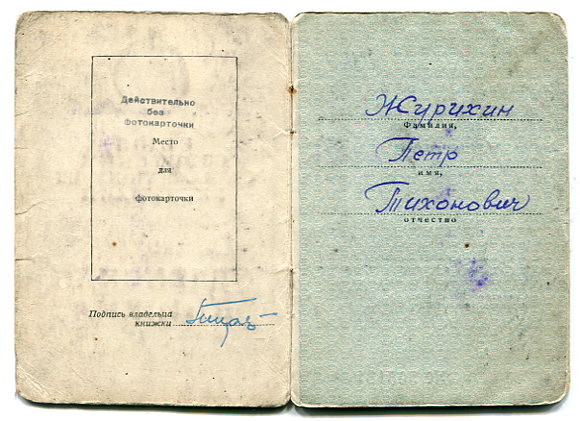 Действительно
без
Фотокарточки
Место
для
фотокарточки
Подпись владельца
книжки
Журихин
Фамилия,
Петр
имя,
Тихонович
отчество